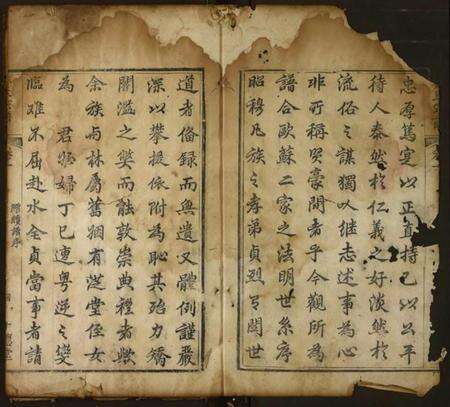 忠厚篤寔以正直持己以公平
待人泰然於仁義之好淡然於
流俗之謀獨以继志述事為心
非所稱賢豪間者乎今觀所為
譜合歐蘇二家之法明世系序
昭穆凡族之孝弟貞烈有関世
道者俻録而無遺又體例謹嚴
深以攀援依附為恥其殆力矯
関濫之獘而敦崇典禮者歟
余族与林屬舊姻有漢堂侄女
為君婦丁巳連粤逆之變
臨難不屈赴水全貞當事者請
陳續譜序